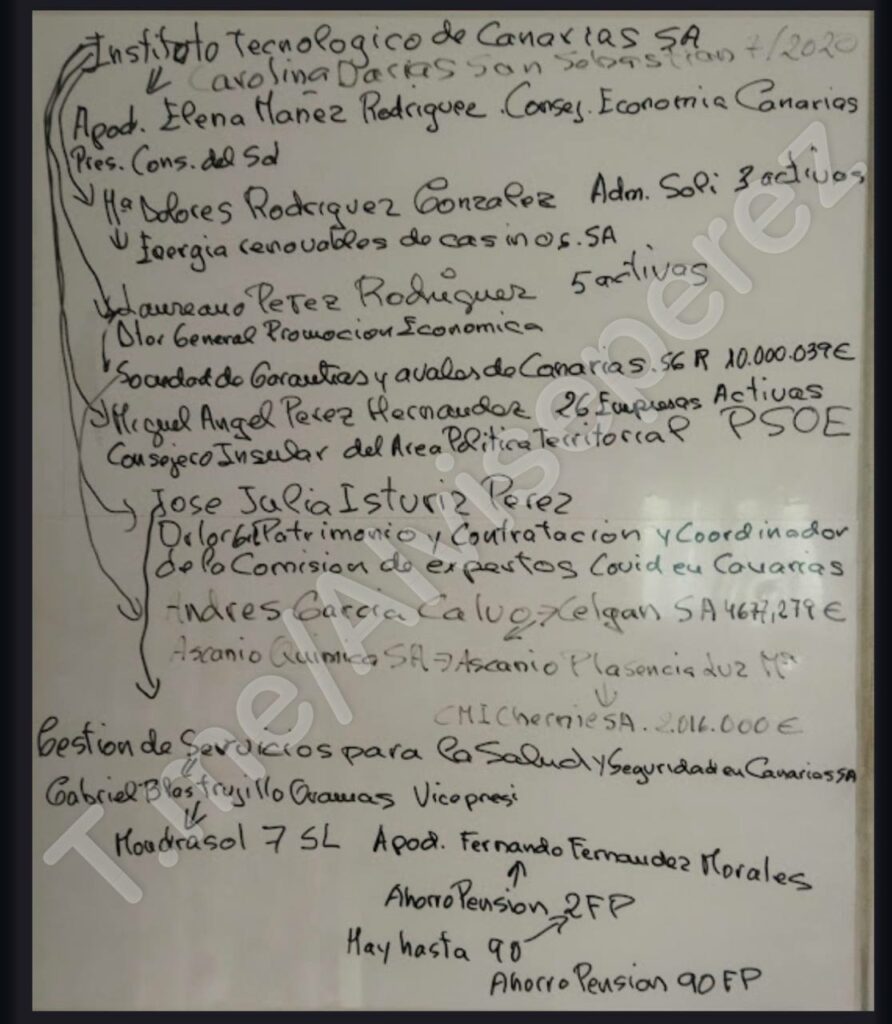 Instituto Tecnologico de Canarias SA
Carolina Darias San Sebastian 7/2020
Apod. Elena Mañez Rodriguez. Consej. Economia Canarias
Pres. Cons. del Sol
Mª Dolores Rodriguez Gonzalez Adm. Soli 3 activas
Energia renovables de casinos. SA
Laureano Perez Rodriguez 5 activas
Dtor General Promocion Economica
Sociedad de Garantias y avales de Canarias. SGR 10.000.039€
Miguel Angel Perez Hernandez 26 Empresas Activas
Consejero Insular del Area Politica Territorial PSOE
Jose Julia Isturiz Perez
Patrimonio y Contratacion y Coordinador
de la Comision de expertos Covid en Canarias
Andres Garcia Calvo → Celgan SA 4677,279€
Ascanio Quimica SA → Ascanio Plasencia Luz Mª
CMI Chernie SA. 2.016.000€
Gestion de Servicios para la Salud y Seguridad en Canarias SA
Gabriel Blas trujillo Oramas Vicepresi
Moudrasol 7 SL Apod. Fernando Fernandez Morales
Ahorro Pension 2FP
Hay hasta 90
Ahorro Pension 90 FP
T.me/Alviseperez